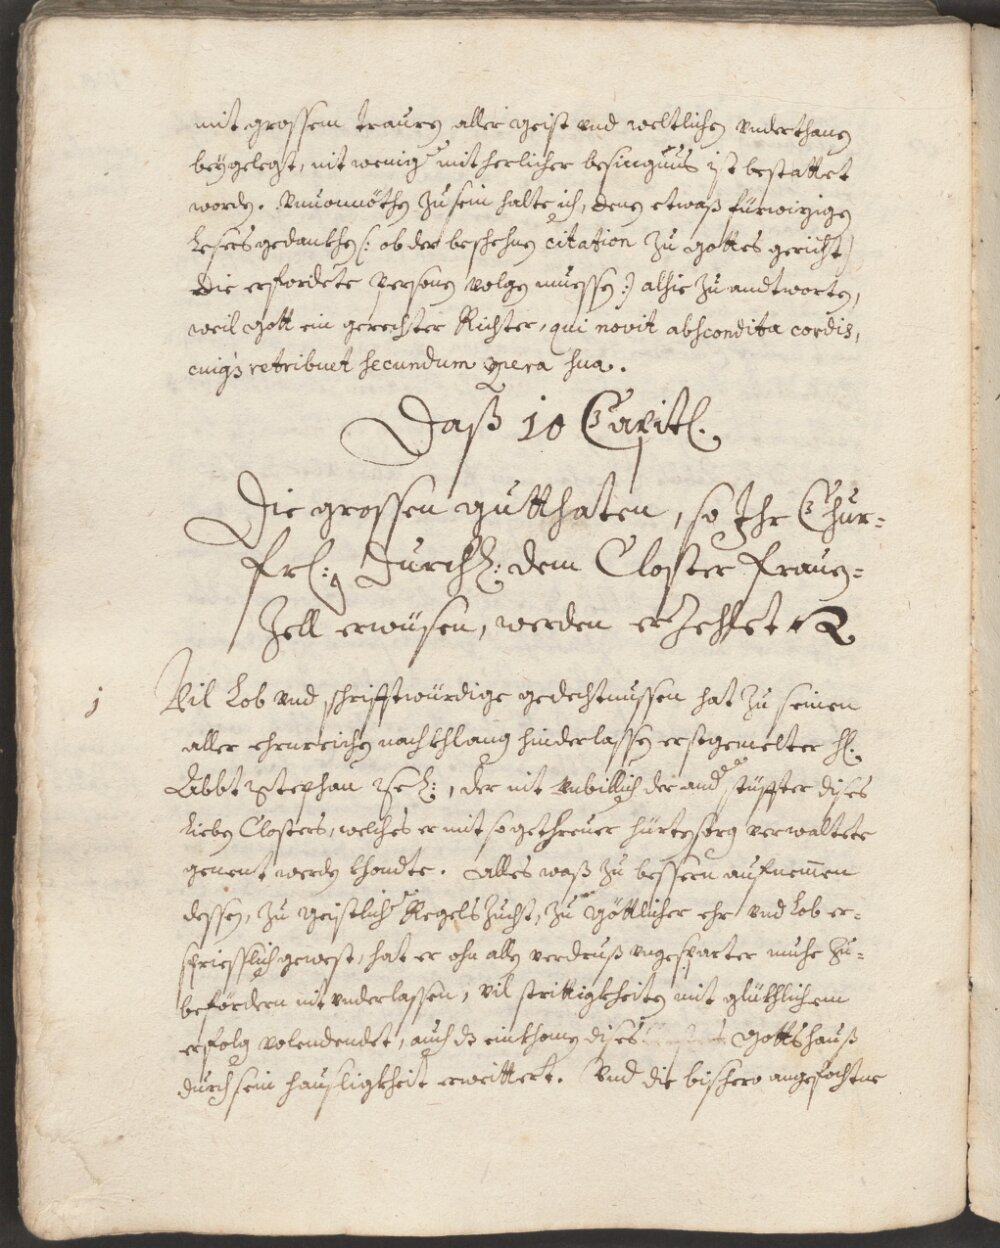 mit grossem trauren aller geist vnd weltlichen vnderthanen
beygelegt, nit weniger mit herlicher besingnus ist bestattet
worden. Vnuonnöthen zu sein halte ich, denen etwaß fürwizigen
Lesers gedankhen (: ob der beschehnen citation zu Gottes gericht
die erforderte Personen volgen muessen :) alhie zu andtworten,
weil Gott ein gerechter Richter, qui novit abscondita cordis,
cuiq3 retribuet secundum opera sua.
Daß 10 Capitl.
Die grossen gutthaten, so Ihr Chur-
frl: Durchl: dem Closter Frauen-
Zell erwüsen, werden erzehlet
1 Vil Lob vnd schrifftwürdige gedechtnussen hat zu seinen
aller ehrnreichen nachkhlang hinderlassen erstgemelter H:
Abbt Stephan Sel:, der nit vnbillich der ander stüffter dises
lieben Closters, welches er mit so getheuer hürtensorg verwaltete
genent werden khondte. Alles waß zu bessern aufnem̄en
dessen, zu geistlicher Regels Zucht, zu Göttlicher ehr vnd Lob er-
sprießlich gewest, hat er ohn allen verdruß vngesparter muhe zu-
befördern nit vnderlassen, vil strittigkheiten mit glükhlichem
erfolg volendendet, auch dz einkhomen dises Gottshauß
durch sein hausligkheit erweittert. Vnd die bißhero angefochtne